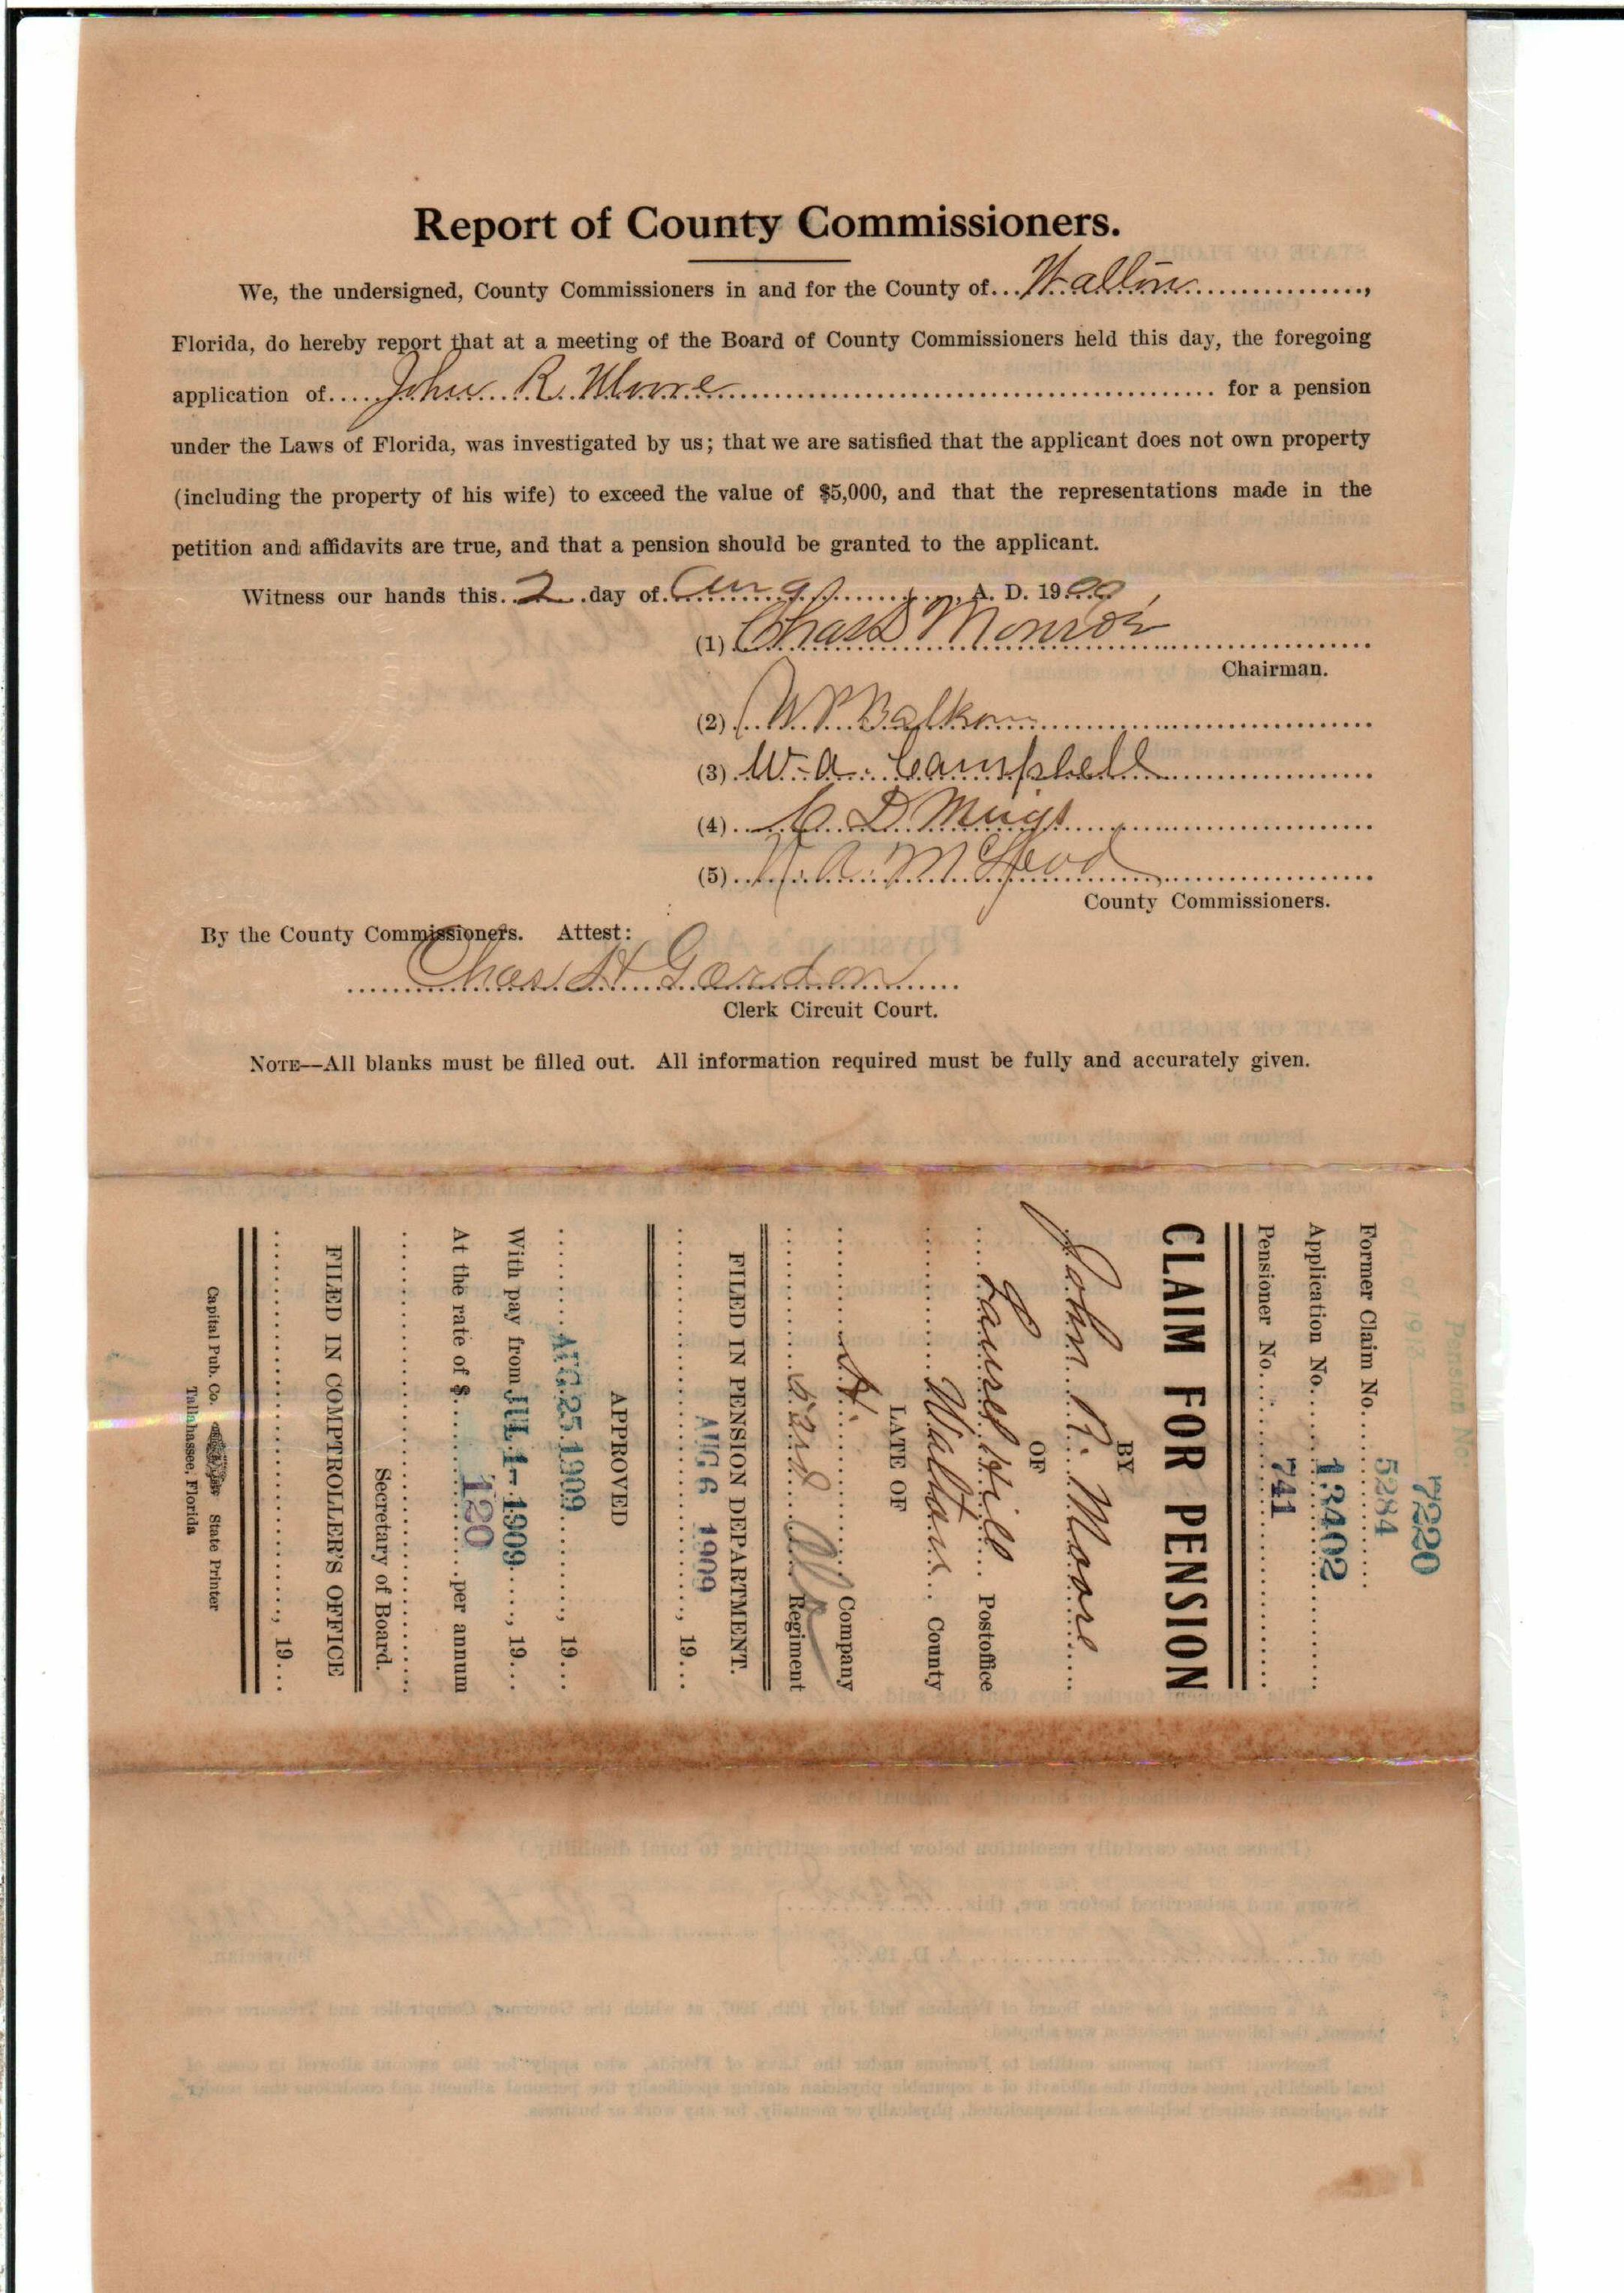 Report of County Commissioners.
We, the undersigned, County Commissioners in and for the County of... Walton ...,
Florida, do hereby report that at a meeting of the Board of County Commissioners held this day, the foregoing
application of..... John R. Moore ..... for a pension
under the Laws of Florida, was investigated by us; that we are satisfied that the applicant does not own property
(including the property of his wife) to exceed the value of $5,000, and that the representations made in the
petition and affidavits are true, and that a pension should be granted to the applicant.
Witness our hands this. 2 .day of. Aug ......, A. D. 19 09
(1) Chas Monroe
Chairman.
(2) W P Balkom
(3) W. A. Campbell
(4) C. D Meigs
(5) A. McLeod
County Commissioners.
By the County Commissioners. Attest:
Chas H Gordon
Clerk Circuit Court.
NOTE—All blanks must be filled out. All information required must be fully and accurately given.
Pension No.
7220
Act of 1913
Former Claim No. 5284
Application No. 13402
Pensioner No. 741
CLAIM FOR PENSION
BY
John R. Moore
OF
Laurel Hill Postoffice
Walton County
LATE OF
H. Company
53rd Ala Regiment
FILED IN PENSION DEPARTMENT.
AUG 6 1909 , 19...
APPROVED
AUG 25 1909 , 19...
With pay from JUL 1- 1909 , 19...
At the rate of $ 120 per annum
Secretary of Board.
FILED IN COMPTROLLER'S OFFICE
, 19...
Capital Pub. Co. State Printer
Tallahassee, Florida